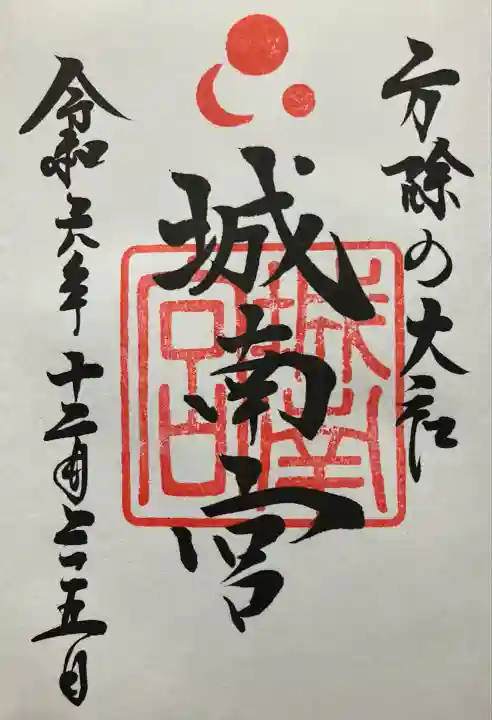 方除の大社
城南宮
令和六年十二月二十五日
城南宮